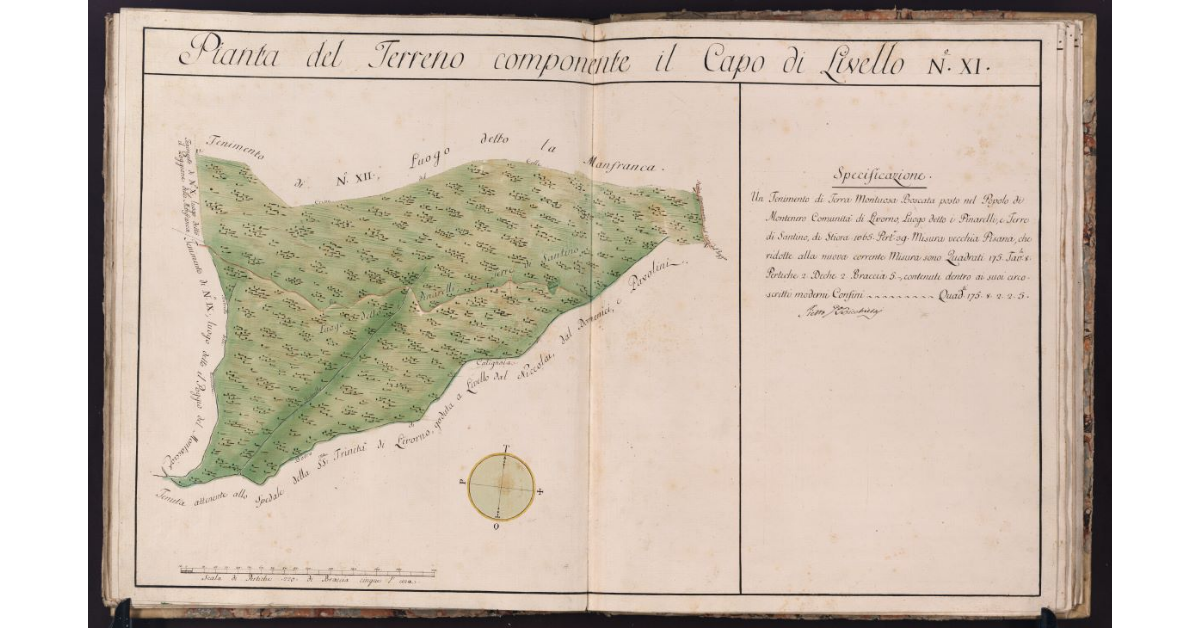 Pianta del Terreno componente il Capo di Livello N.º XI.
Tenimento di N.º XII, Luogo detto la Manfranca.
Tenimento di N.º IX, luogo detto il Poggio del
Luogo detto i Pinarelli
Terre di Santino
Calignaia
Terreno attenente allo Spedale della SS. Trinità di Livorno, goduto a Livello dal Niccolai, dal Domenici, e Pavolini
T
P
O
Scala di Pertiche di Braccia cinque l'una.
Specificazione.
Un Tenimento di Terra Montuosa Boscata posto nel Popolo di
Montenero Comunità di Livorno, Luogo detto i Pinarelli, e Terre
di Santino, di Stiora 1065 Pert.e 29. Misura vecchia Pisana, che
ridotte alla nuova corrente Misura sono Quadrati 175. Tav.e 8.
Pertiche 2 Deche 2 Braccia 5, contenuti dentro ai suoi circo-
scritti moderni Confini Quad.i 175. 8. 2. 2. 5.